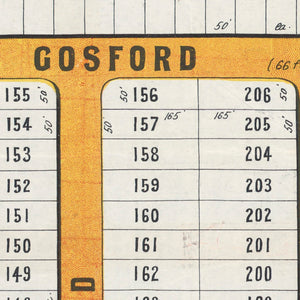 50' ea.
GOSFORD
(66 f
155 50' 50' 156 206 50'
154 50' 50' 157 165' 165' 205 50'
153 158 204
152 159 203
151 160 202
150 161 201
149 162 200
D